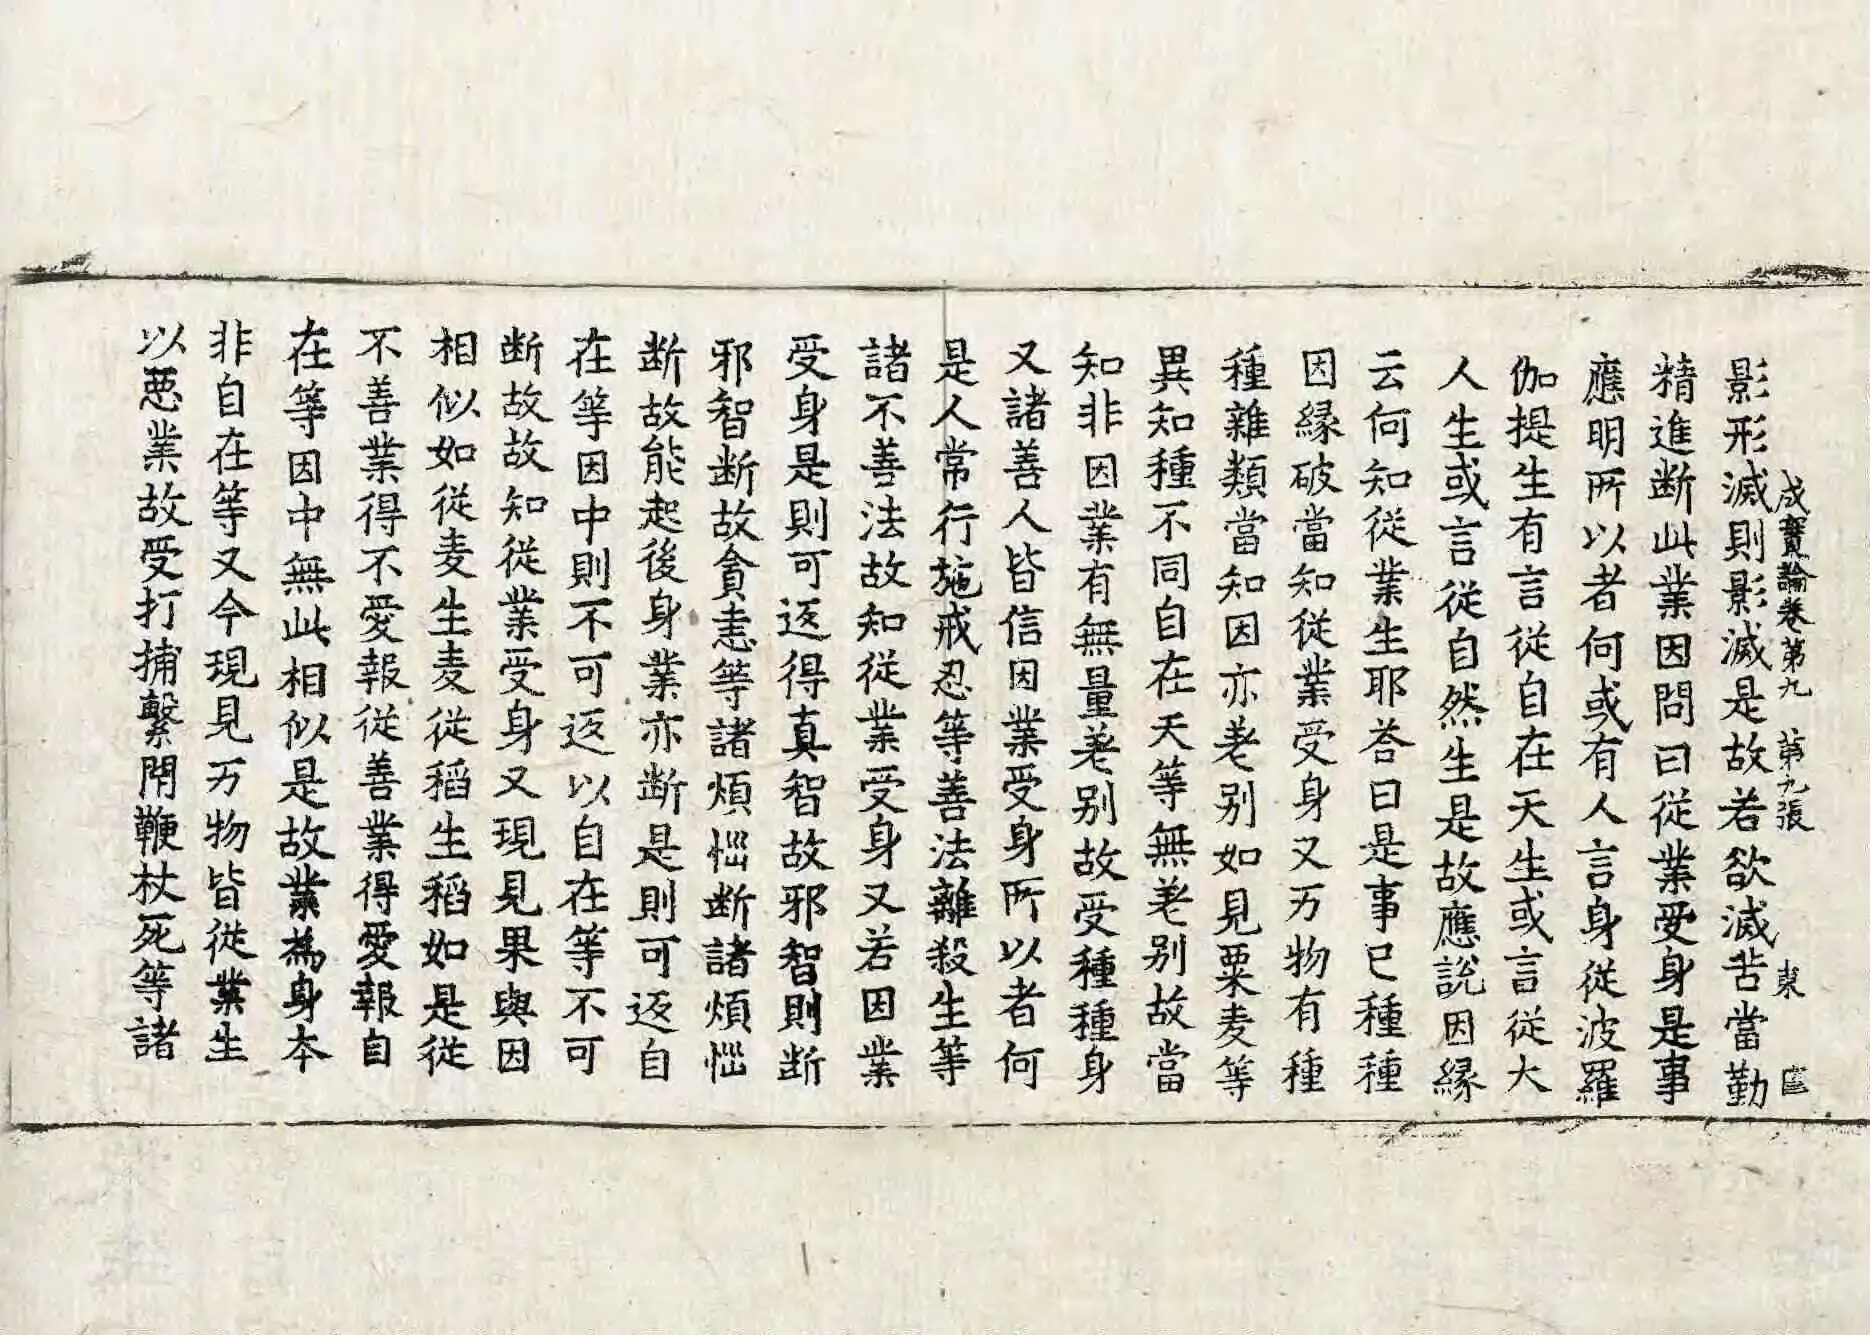 成實論卷第九 第九張 東
影形滅則影滅是故若欲滅苦當勤
精進断此業因問曰從業受身是事
應明所以者何或有人言身從波羅
伽提生有言從自在天生或言從大
人生或言從自然生是故應說因縁
云何知從業生耶荅曰是事已種種
因縁破當知從業受身又万物有種
種雜類當知因亦差别如見粟麦等
異知種不同自在天等無差别故當
知非因業有無量差别故受種種身
又諸善人皆信因業受身所以者何
是人常行施戒忍等善法離殺生等
諸不善法故知從業受身又若因業
受身是則可返得真智故邪智則断
邪智断故貪恚等諸煩惱断諸煩惱
断故能起後身業亦断是則可返自
在等因中則不可返以自在等不可
断故故知從業受身又現見果與因
相似如從麦生麦從稻生稻如是從
不善業得不愛報從善業得愛報自
在等因中無此相似是故業為身本
非自在等又今現見万物皆從業生
以惡業故受打捕繫閇鞭杖死等諸